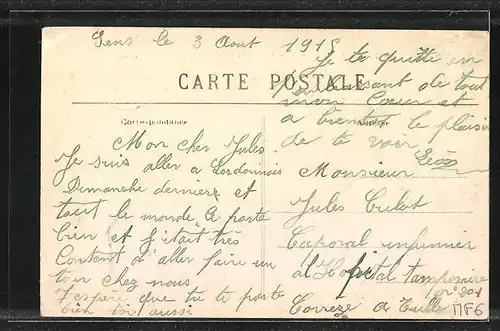 Sens le 3 Aout 1918
CARTE POSTALE
Correspondance
Adresse
Mon cher Jules
Je suis aller a
Dimanche derniere et
tout le monde a porte
bien et J'etait très
Content d'aller faire un
tour chez nous
J'espère que tu te porte
bien toi aussi
Je te quitte en
de tout
mon Coeur et
a bientot le plaisir
de te voir
Léon
Monsieur
Jules Culot
Caporal infirmier
al Hopital temporaire
n° 201
Corrèze a Tulle
MF6